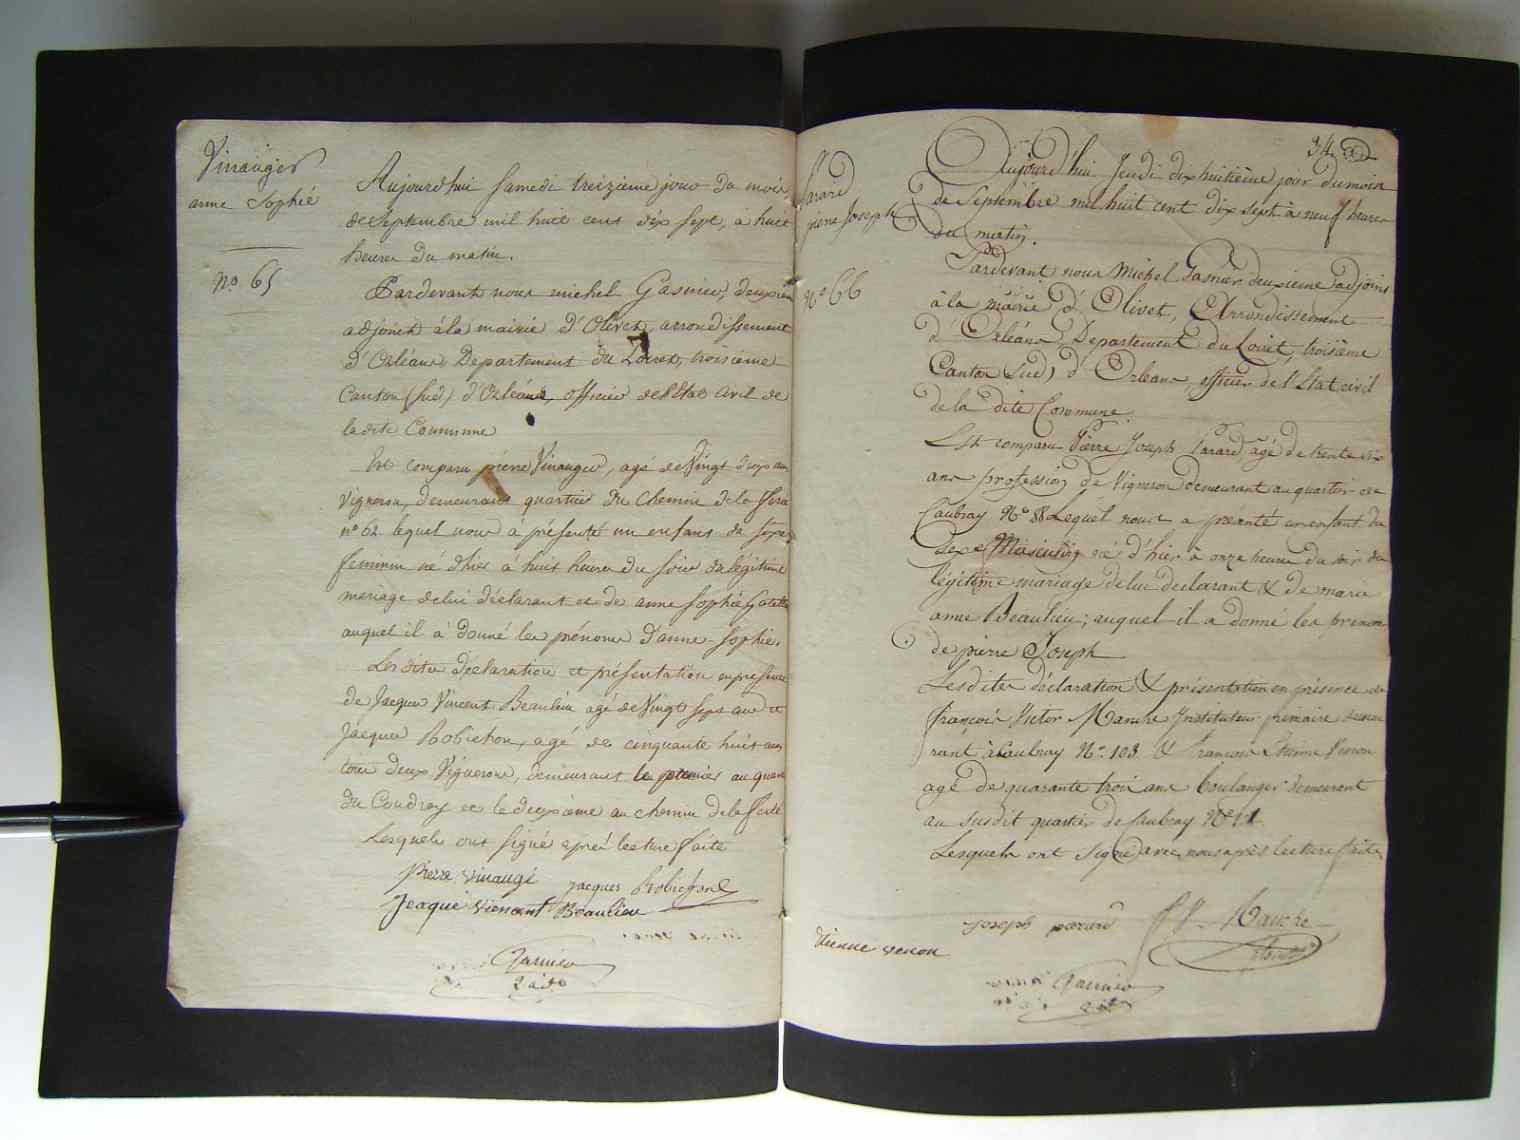 Vinauger
anne Sophie
No. 65
Aujourdhui Samedi treizieme jour du mois
de Septembre mil huit cent dix Sept, à huit
heures du matin.
Pardevant nous michel Gasnier, deuxiem
adjoint à la mairie d'Olivet, arrondissement
d'Orléans, Departement du Loiret, troisieme
Canton (Sud) d'Orléans, officier de l'Etat Civil de
la dite Commune
Est comparu pierre Vinauger, agé de Vingt deux ans
Vigneron, demeurant quartier du Chemin de la ferté
no 62 lequel nous à présenté un enfant du Sexe
feminin né d'hier à huit heures du Soir du légitime
mariage de lui déclarant et de anne Sophie
auquel il à donné les prénoms d'anne-Sophie.
Les dites déclaration et présentation en presence
de Jacques Vincent Beaulieu agé de Vingt Sept ans et
Jacques Robichon, agé de cinquante huit ans
tous deux Vignerons, demeurant le premier au quart
du Coudray et le deuxieme au chemin de la ferté
Lesquels ont Signé après lecture faite
Pierre vinaugé Jacques Robichon
Jeaque viencent Beaulieu
Gasnier
2 adt
34
Parard
pierre Joseph
No 66
Aujourd'hui Jeudi dix huitième jour du mois
de Septembre mil huit cent dix sept à neuf heures
du matin.
Pardevant nous Michel Gasnier deuxieme adjoint
à la mairie d'Olivet, Arrondissement
d'Orléans, Departement du Loiret, troisième
Canton (Sud) d'Orleans, officier de l'Etat civil
de la dite Commune
Est comparu Pierre Joseph Parard agé de trente six
ans profession de Vigneron demeurant au quartier de
Caubray No 88 Lequel nous a presenté un enfant du
Sexe Masculin né d'hier à onze heures du soir du
légitime mariage de lui declarant & de marie
anne Beaulieu; auquel il a donné les prenom
de pierre Joseph
Lesdites déclaration & présentation en présence de
françois Victor Manche Instituteur primaire demeu
rant à Caubray No. 103 & françois Etienne Venon
agé de quarante trois ans boulanger demeurant
au susdit quartier de Caubray No 11
Lesquels ont signé avec nous après lecture faite
joseph parard f. V. Manche
étienne venon
Gasnier
2 adt